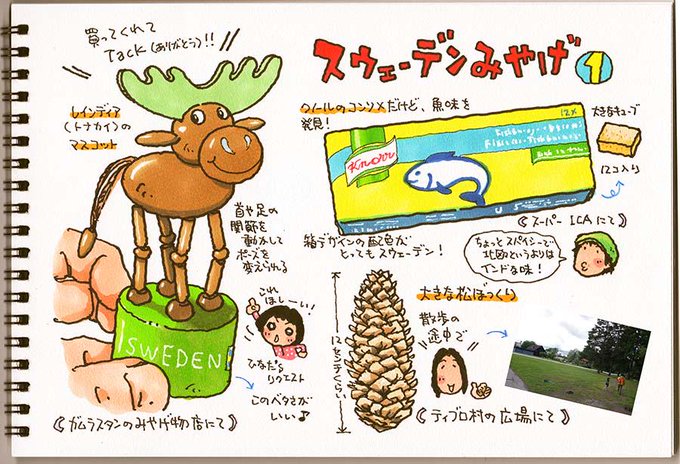 スウェーデンみやげ
1
買ってくれて
Tack(ありがとう)!!
レインディア
(トナカイ)の
マスコット
首や足の
関節を
動かして
ポーズを
変えられる
SWEDEN
これ
ほしーい!
ひなた's
リクエスト
このベタさが
いい♪
《ガムラスタンのみやげ物店にて》
クノールのコンソメだけど、魚味を
発見!
Knorr
12x
大きなキューブ
12コ入り
《スーパー ICAにて》
箱デザインの配色が
とってもスウェーデン!
ちょっとスパイシーで
北欧というよりは
インドな味!
大きな松ぼっくり
12センチくらい
散歩の
途中で
《ティブロ村の広場にて》